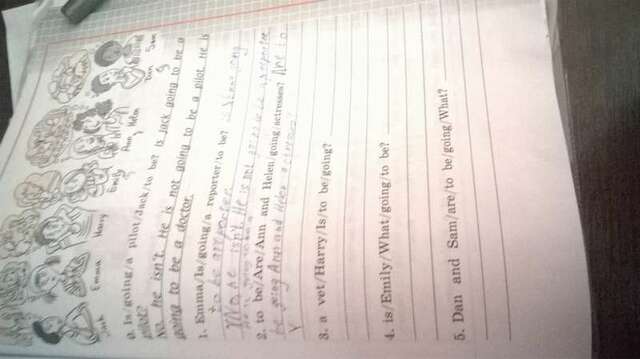 Jack
Emma
Harry
Emily
Ann
Helen
Dan
Sam
0. Is/going/a pilot/Jack/to be? Is Jack going to be a
pilot?
No, he isn't. He is not going to be a pilot. He is
going to be a doctor.
1. Emma/Is/going/a reporter/to be?
to be a reporter
he isn't He is not
2. to be/Are/Ann and Helen/going/actresses? Are
be going Ann and Helen actresses?
3. a vet/Harry/Is/to be/going?
4. is/Emily/What/going/to be?
5. Dan and Sam/are/to be/going/What?